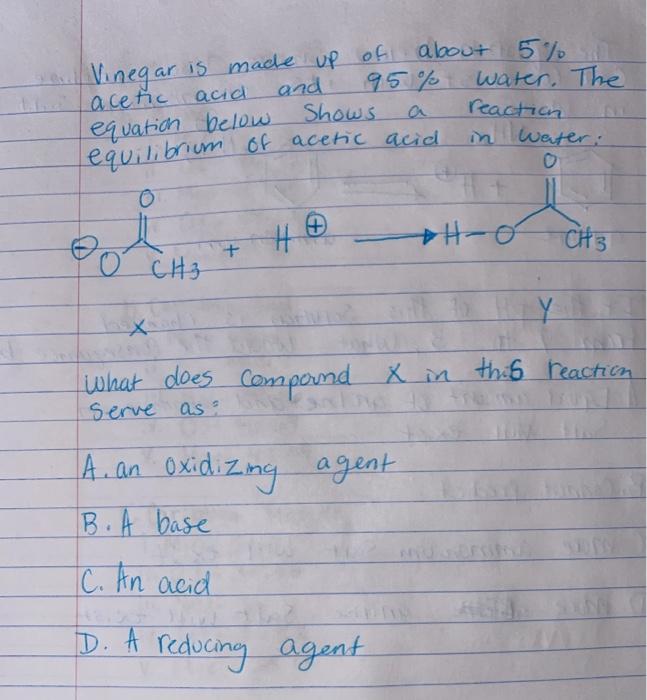 Vinegar is made up of about 5%
acetic acid and 95% water. The
equation below shows a reaction
equilibrium of acetic acid in water:
O O
⊖O CH3 + H⊕ → H-O CH3
X Y
What does compound X in this reaction
Serve as:
A. an oxidizing agent
B. A base
C. An acid
D. A reducing agent